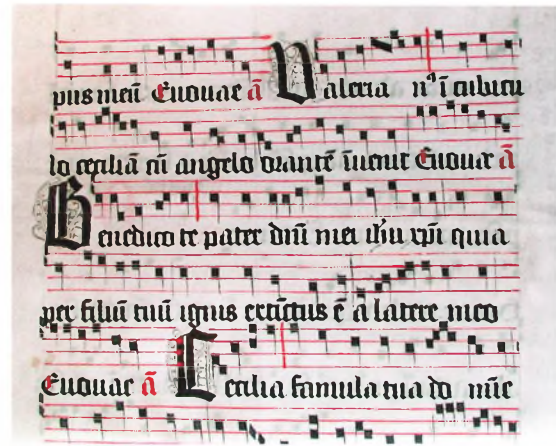 pus meū Euouae ā Valeria nꝰ ī cubicu
lo ceciliā cū angelo orantē īuenit Euouae ā
Benedico te pater dn̄i mei ih̄u xp̄i quia
per filiū tuū ignis extīctus ē a latere meo
Euouae ā Cecilia famula tua do mīe